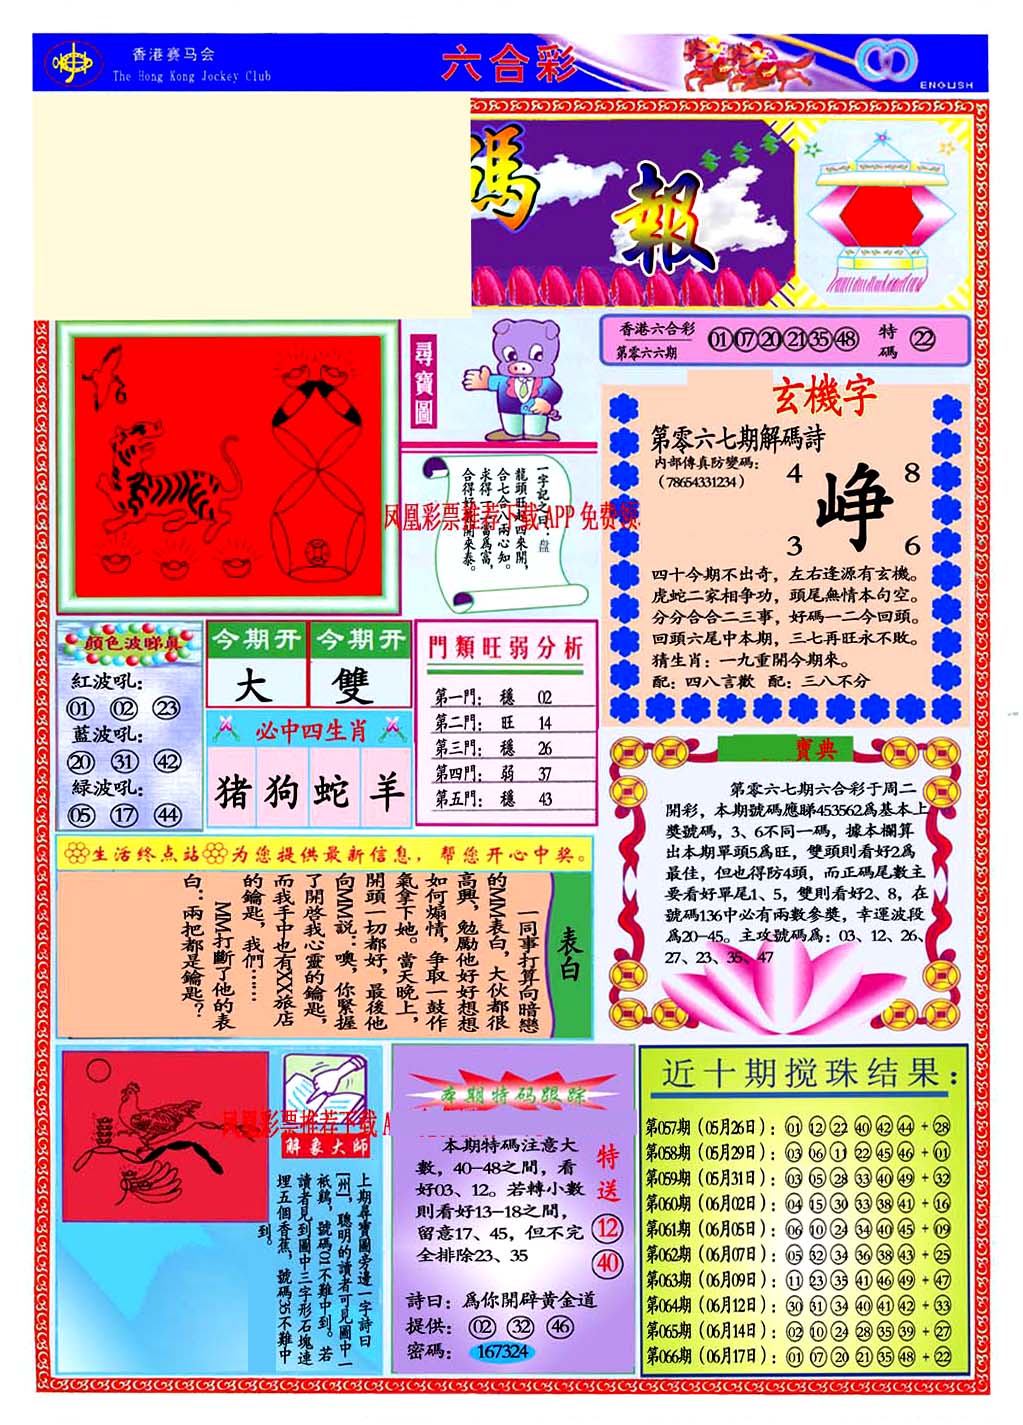 香港赛马会
The Hong Kong Jockey Club
六合彩
ENGLISH
碼報
尋寶圖
香港六合彩
第零六六期
01 07 20 21 35 48
特碼
22
玄機字
第零六七期解碼詩
内部傳真防變碼：
（78654331234）
4 8
峥
3 6
四十今期不出奇，左右逢源有玄機。
虎蛇二家相争功，頭尾無情本句空。
分分合合二三事，好碼一二今回頭。
回頭六尾中本期，三七再旺永不敗。
猜生肖：一九重開今期來。
配：四八言歡 配：三八不分
一字記之曰：盤
合七合八兩心知。
凤凰彩票推荐下载 APP 免费领
顔色波睇真
紅波吼：
01 02 23
藍波吼：
20 31 42
緑波吼：
05 17 44
今期开 今期开
大 雙
必中四生肖
猪 狗 蛇 羊
門類旺弱分析
第一門： 穩 02
第二門： 旺 14
第三門： 穩 26
第四門： 弱 37
第五門： 穩 43
寶典
第零六七期六合彩于周二
開彩，本期號碼應睇453562爲基本上
奬號碼，3、6不同一碼，據本欄算
出本期單頭5爲旺，雙頭則看好2爲
最佳，但也得防4頭，而正碼尾數主
要看好單尾1、5，雙則看好2、8，在
號碼136中必有兩數參奬，幸運波段
爲20-45。主攻號碼爲：03、12、26、
27、23、35、47
生活终点站 为您提供最新信息，帮您开心中奖。
表白
一同事打算向暗戀
的MM表白，大伙都很
高興，勉勵他好好想想
如何煽情，争取一鼓作
氣拿下她。當天晚上，
開頭一切都好，最後他
向MM説：噢，你緊握
了開啓我心靈的鑰匙，
而我手中也有XX旅店
的鑰匙，我們……
MM打斷了他的表
白：兩把都是鑰匙？
凤凰彩票推荐下载 A
解象大師
上期尋寶圖旁邊一字詩曰
[州]，聰明的讀者可見圖中一
衹鷄，號碼01不難中到。若
讀者見到圖中三字形石塊連
埋五個香蕉，號碼35不難中
到。
本期特码跟踪
本期特碼注意大
數，40-48之間，看
好03、12。若轉小數
則看好13-18之間，
留意17、45，但不完
全排除23、35
特送
12
40
詩曰：爲你開辟黄金道
提供：02 32 46
密碼：167324
近十期搅珠结果：
第057期（05月26日）：01 12 22 40 42 44 + 28
第058期（05月29日）：03 06 11 22 45 46 + 01
第059期（05月31日）：03 05 28 33 40 49 + 32
第060期（06月02日）：04 15 30 33 38 41 + 16
第061期（06月05日）：06 10 24 34 40 45 + 09
第062期（06月07日）：05 32 34 36 38 43 + 25
第063期（06月09日）：11 23 35 41 46 49 + 47
第064期（06月12日）：30 31 34 40 41 42 + 33
第065期（06月14日）：02 10 24 28 35 39 + 27
第066期（06月17日）：01 07 20 21 35 48 + 22